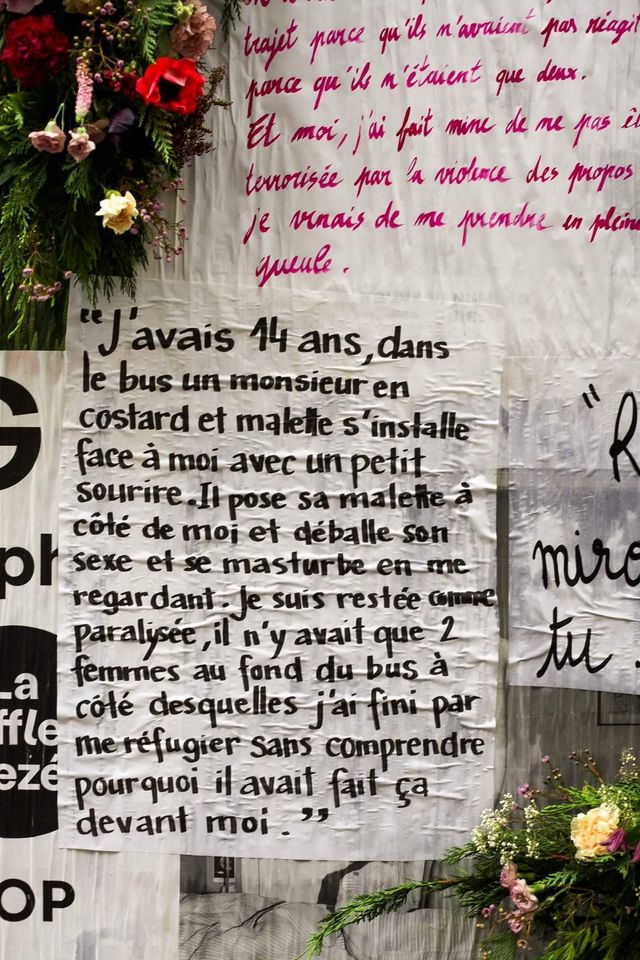 trajet parce qu'ils n'avaient pas réagit
parce qu'ils n'étaient que deux.
Et moi, j'ai fait mine de me pas
terrorisée par la violence des propos
je venais de me prendre en pleine
gueule.
"J'avais 14 ans, dans
le bus un monsieur en
costard et malette s'installe
face à moi avec un petit
sourire. Il pose sa malette à
côté de moi et déballe son
sexe et se masturbe en me
regardant. Je suis restée comme
paralysée, il n'y avait que 2
femmes au fond du bus à
côté desquelles j'ai fini par
me réfugier sans comprendre
pourquoi il avait fait ça
devant moi."
"R
miro
tu
G
ph
La
ffle
ezé
OP